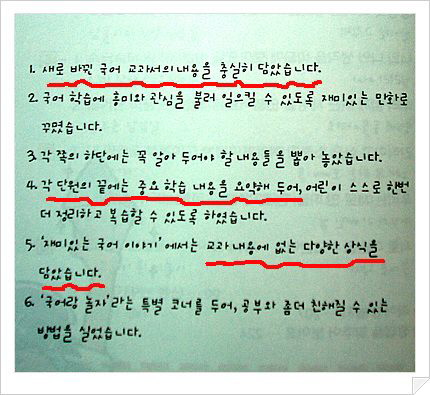 1. 새로 바뀐 국어 교과서의 내용을 충실히 담았습니다.
2. 국어 학습에 흥미와 관심을 불러 일으킬 수 있도록 재미있는 만화로
꾸몄습니다.
3. 각 쪽의 하단에는 꼭 알아 두어야 할 내용들을 뽑아 놓았습니다.
4. 각 단원의 끝에는 중요 학습 내용을 요약해 두어, 어린이 스스로 한번
더 정리하고 복습할 수 있도록 하였습니다.
5. '재미있는 국어 이야기'에서는 교과 내용에 없는 다양한 상식을
담았습니다.
6. '국어랑 놀자'라는 특별 코너를 두어, 공부와 좀더 친해질 수 있는
방법을 실었습니다.